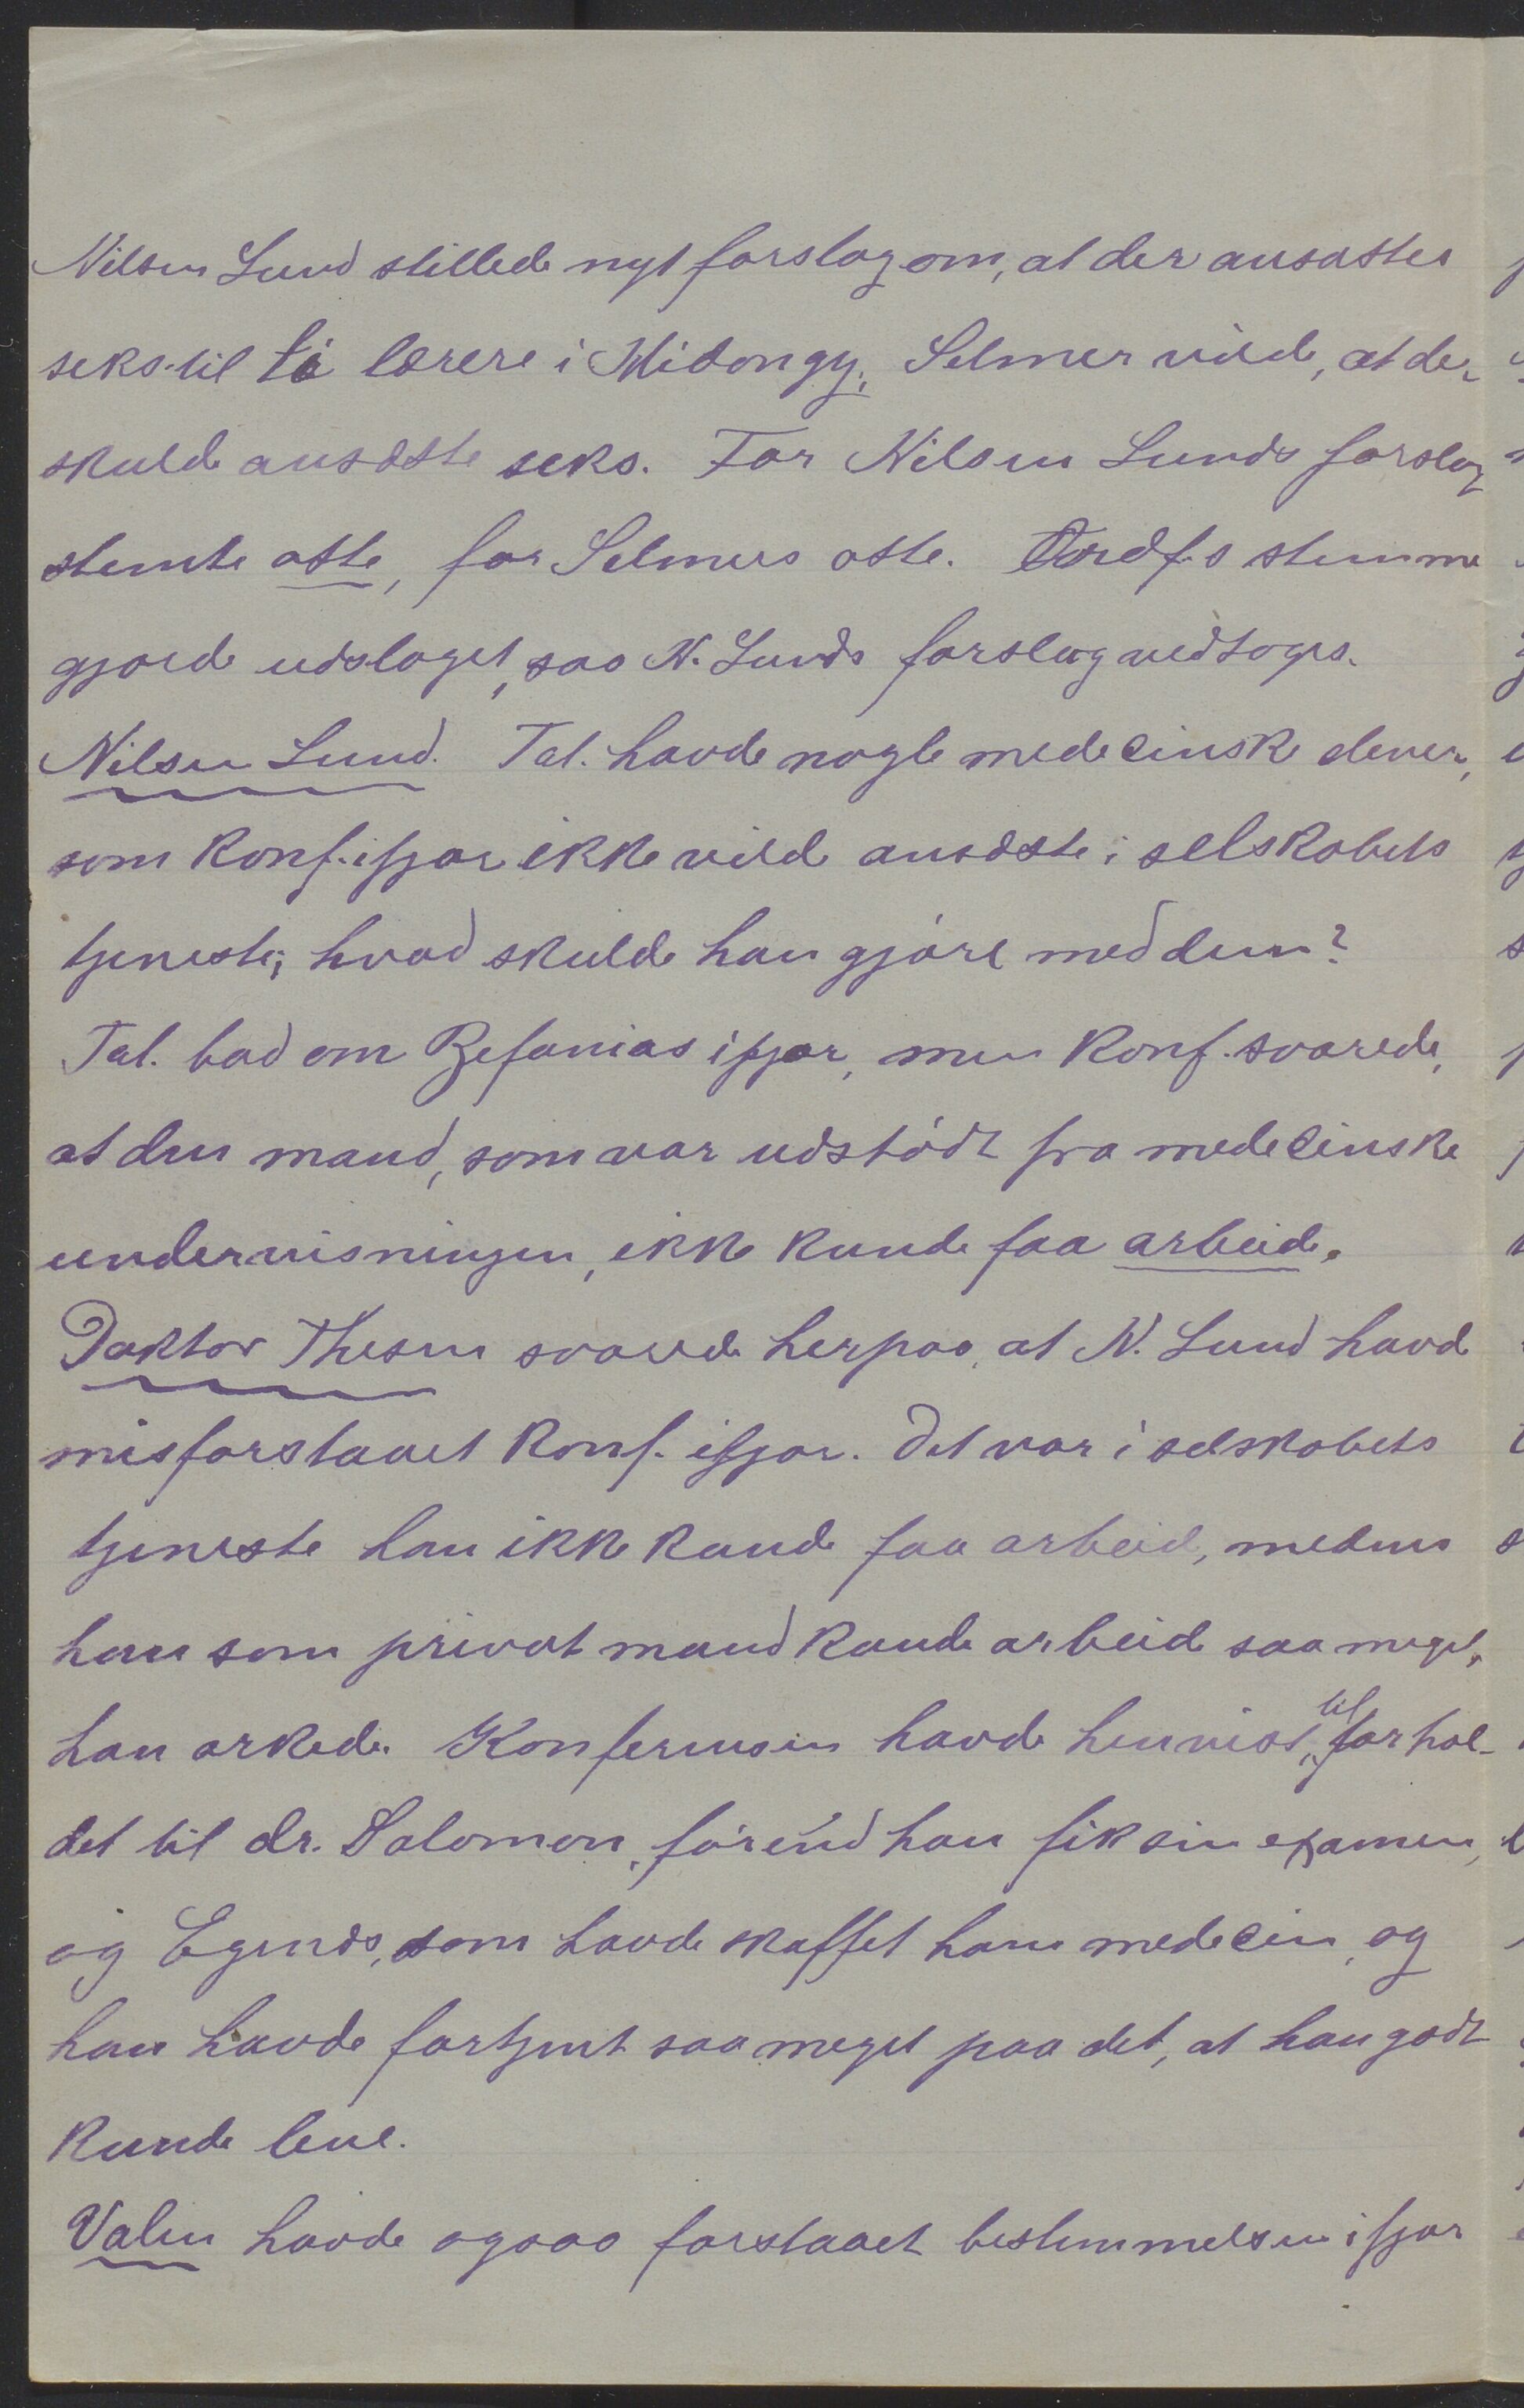 Nilsen Lund stillede nyt forslag om, at der ansattes
seks til ti lærere i Midongy. Selmer vilde, at der
skulde ansætte seks. For Nilsen Lunds forslag
stemte otte, for Selmers otte. Ordf.s stemme
gjorde udslaget, saa N. Lunds forslag vedtoges.
Nilsen Lund. Tal. havde nogle medecinske elever,
som konf. ifjor ikke vilde ansætte i selskabets
tjeneste; hvad skulde han gjøre med dem?
Tal. bad om Zefanias ifjor, men konf. svarede,
at den mand, som var udstødt fra medecinske
undervisningen, ikke kunde faa arbeide.
Doktor Thesen svarede herpaa, at N. Lund havde
misforstaaet konf. ifjor. Det var i selskabets
tjeneste han ikke kunde faa arbeid, medens
han som privat mand kunde arbeide saa meget,
han orkede. Konferensen havde henvist til forhol-
det til dr. Salomon, førend han fik sin examen,
og Egenæs, som havde skaffet ham medecin, og
han havde fortjent saa meget paa det, at han godt
kunde leve.
Valen havde ogsaa forstaaet bestemmelsen ifjor